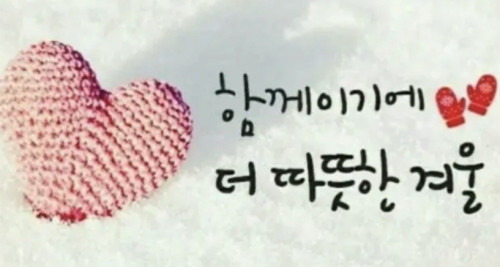 함께이기에
더 따뜻한 겨울